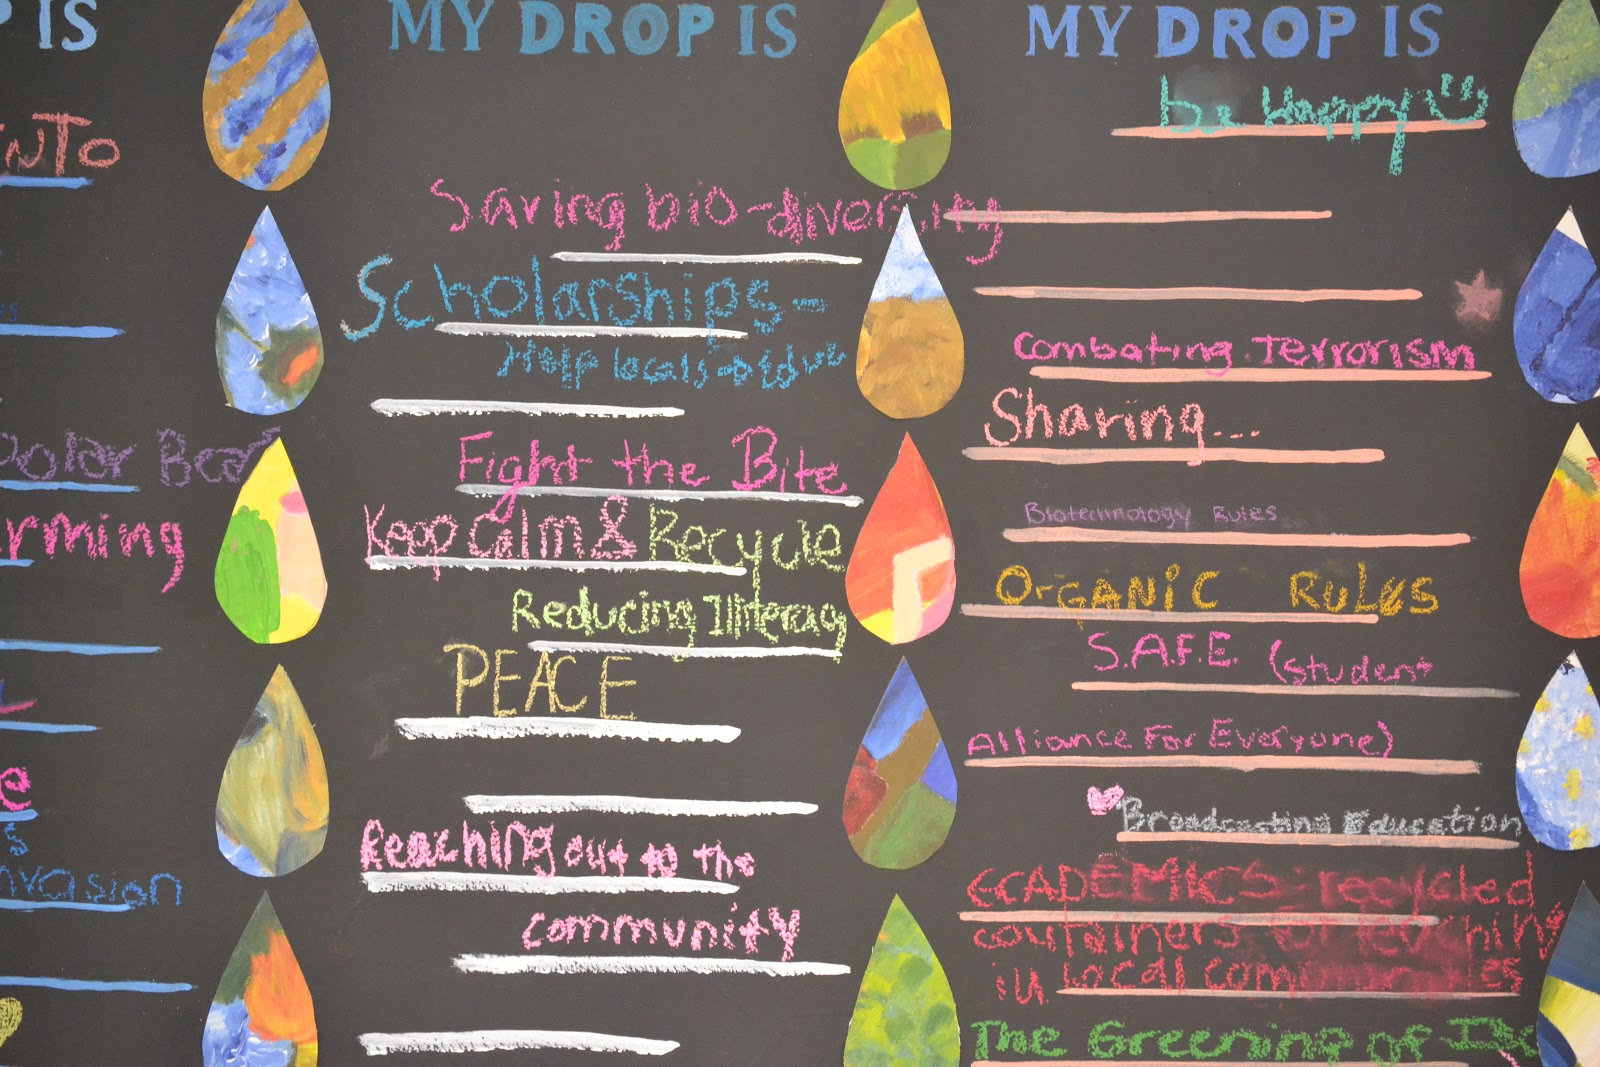 IS
INTO
Polar Bea
arming
e
s
nvasion
MY DROP IS
Saving bio-diversity
Scholarships-
Help locals-
Fight the Bite
Keep Calm & Recycle
Reducing Illiteracy
PEACE
Reaching out to the
community
MY DROP IS
be Happy
Combating Terrorism
Sharing...
Biotechnology Rules
ORGANIC RULES
S.A.F.E. (Student
Alliance For Everyone)
Broadcasting Education
ECADEMICS recycled
containers for teaching
in local communities
The Greening of